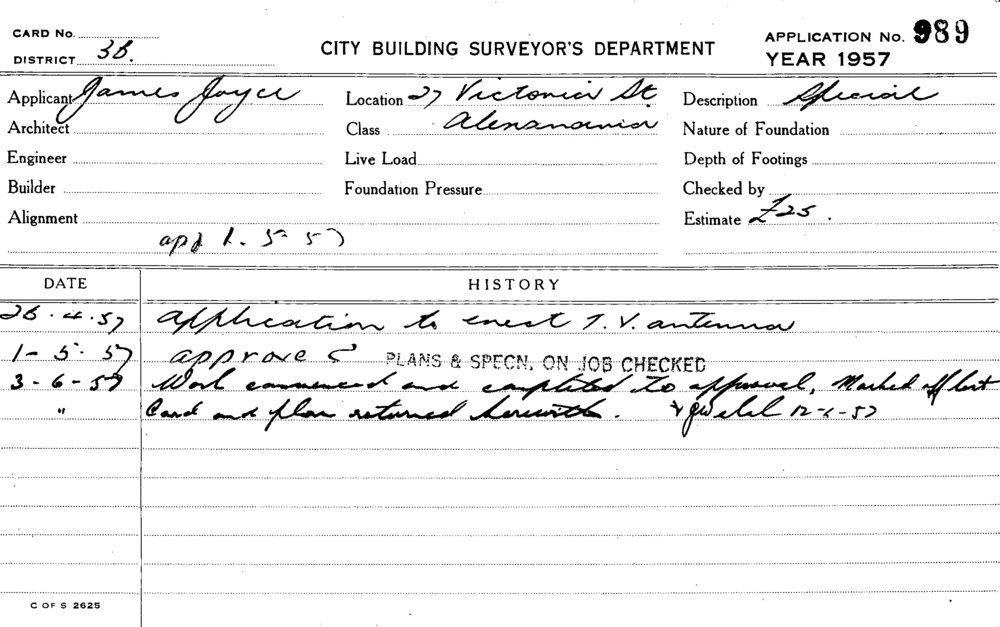 CARD No.
DISTRICT 3B.
CITY BUILDING SURVEYOR'S DEPARTMENT
APPLICATION No. 989
YEAR 1957
Applicant James Joyce Location 27 Victoria St Description Special
Architect Class Alexandria Nature of Foundation
Engineer Live Load Depth of Footings
Builder Foundation Pressure Checked by
Alignment Estimate £25.
app 1.5-57
DATE HISTORY
26.4.57 Application to erect T.V. antenna
1-5-57 approved PLANS & SPECN. ON JOB CHECKED
3-6-57 Work commenced and completed to approval, Marked off list
" Card and plan returned herewith. 12-6-57
C OF S 2625